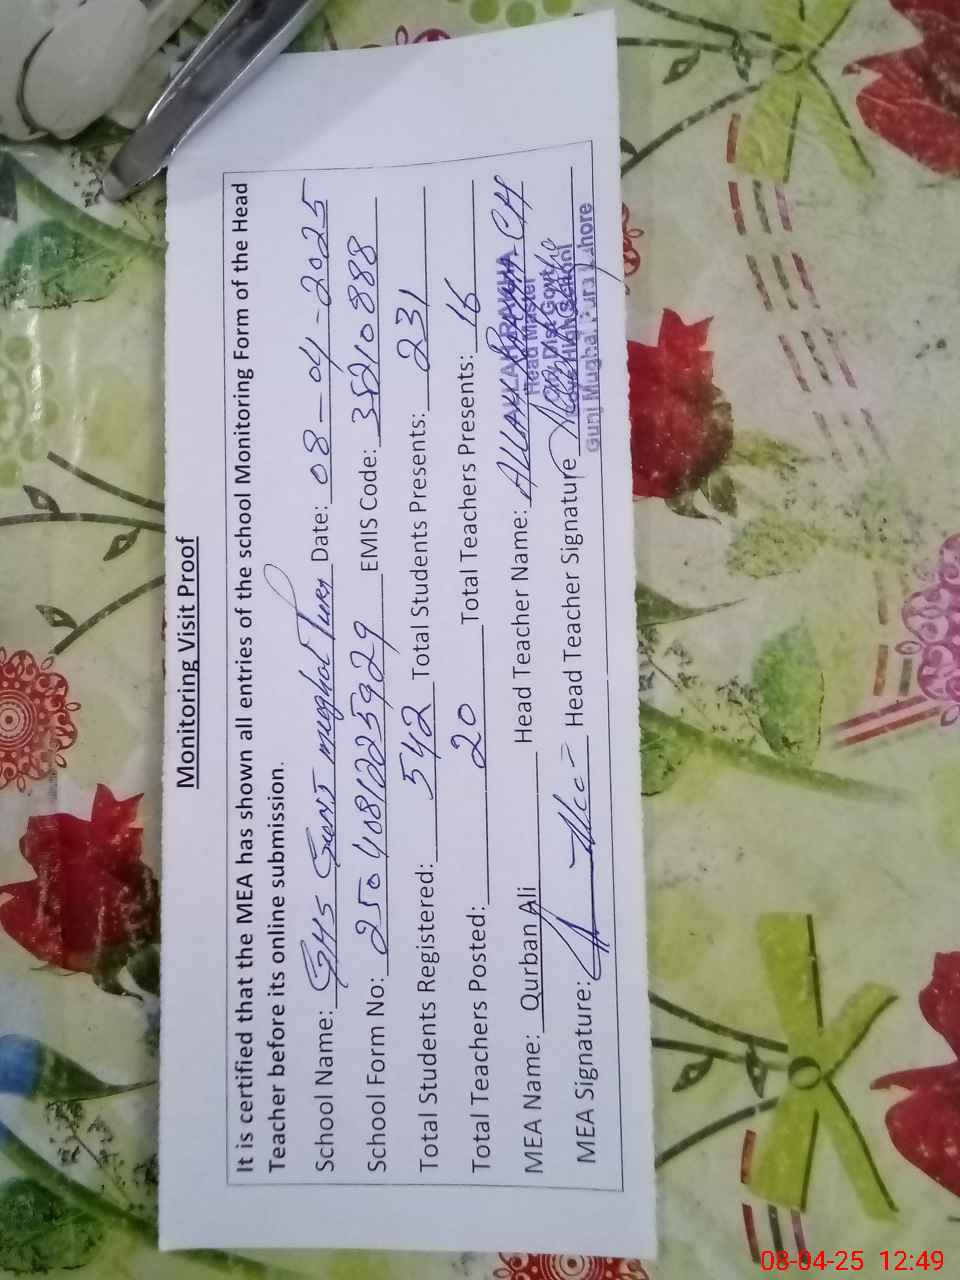 Monitoring Visit Proof
It is certified that the MEA has shown all entries of the school Monitoring Form of the Head
Teacher before its online submission.
School Name: GHS Gunj mughal Pura Date: 08-04-2025
School Form No: 2504081225929 EMIS Code: 35210888
Total Students Registered: 542 Total Students Presents: 231
Total Teachers Posted: 20 Total Teachers Presents: 16
MEA Name: Qurban Ali Head Teacher Name: ALLAH RAKHA CH
MEA Signature: Head Teacher Signature
Head Master
Govt.
High School
Gunj Mughal Pura Lahore
08-04-25 12:49